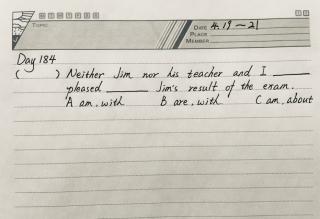 TOPIC
DATE 4.19~21
PLACE
MEMBER
Day 184
( ) Neither Jim nor his teacher and I ____
pleased ____ Jim's result of the exam.
A am, with B are, with C am, about